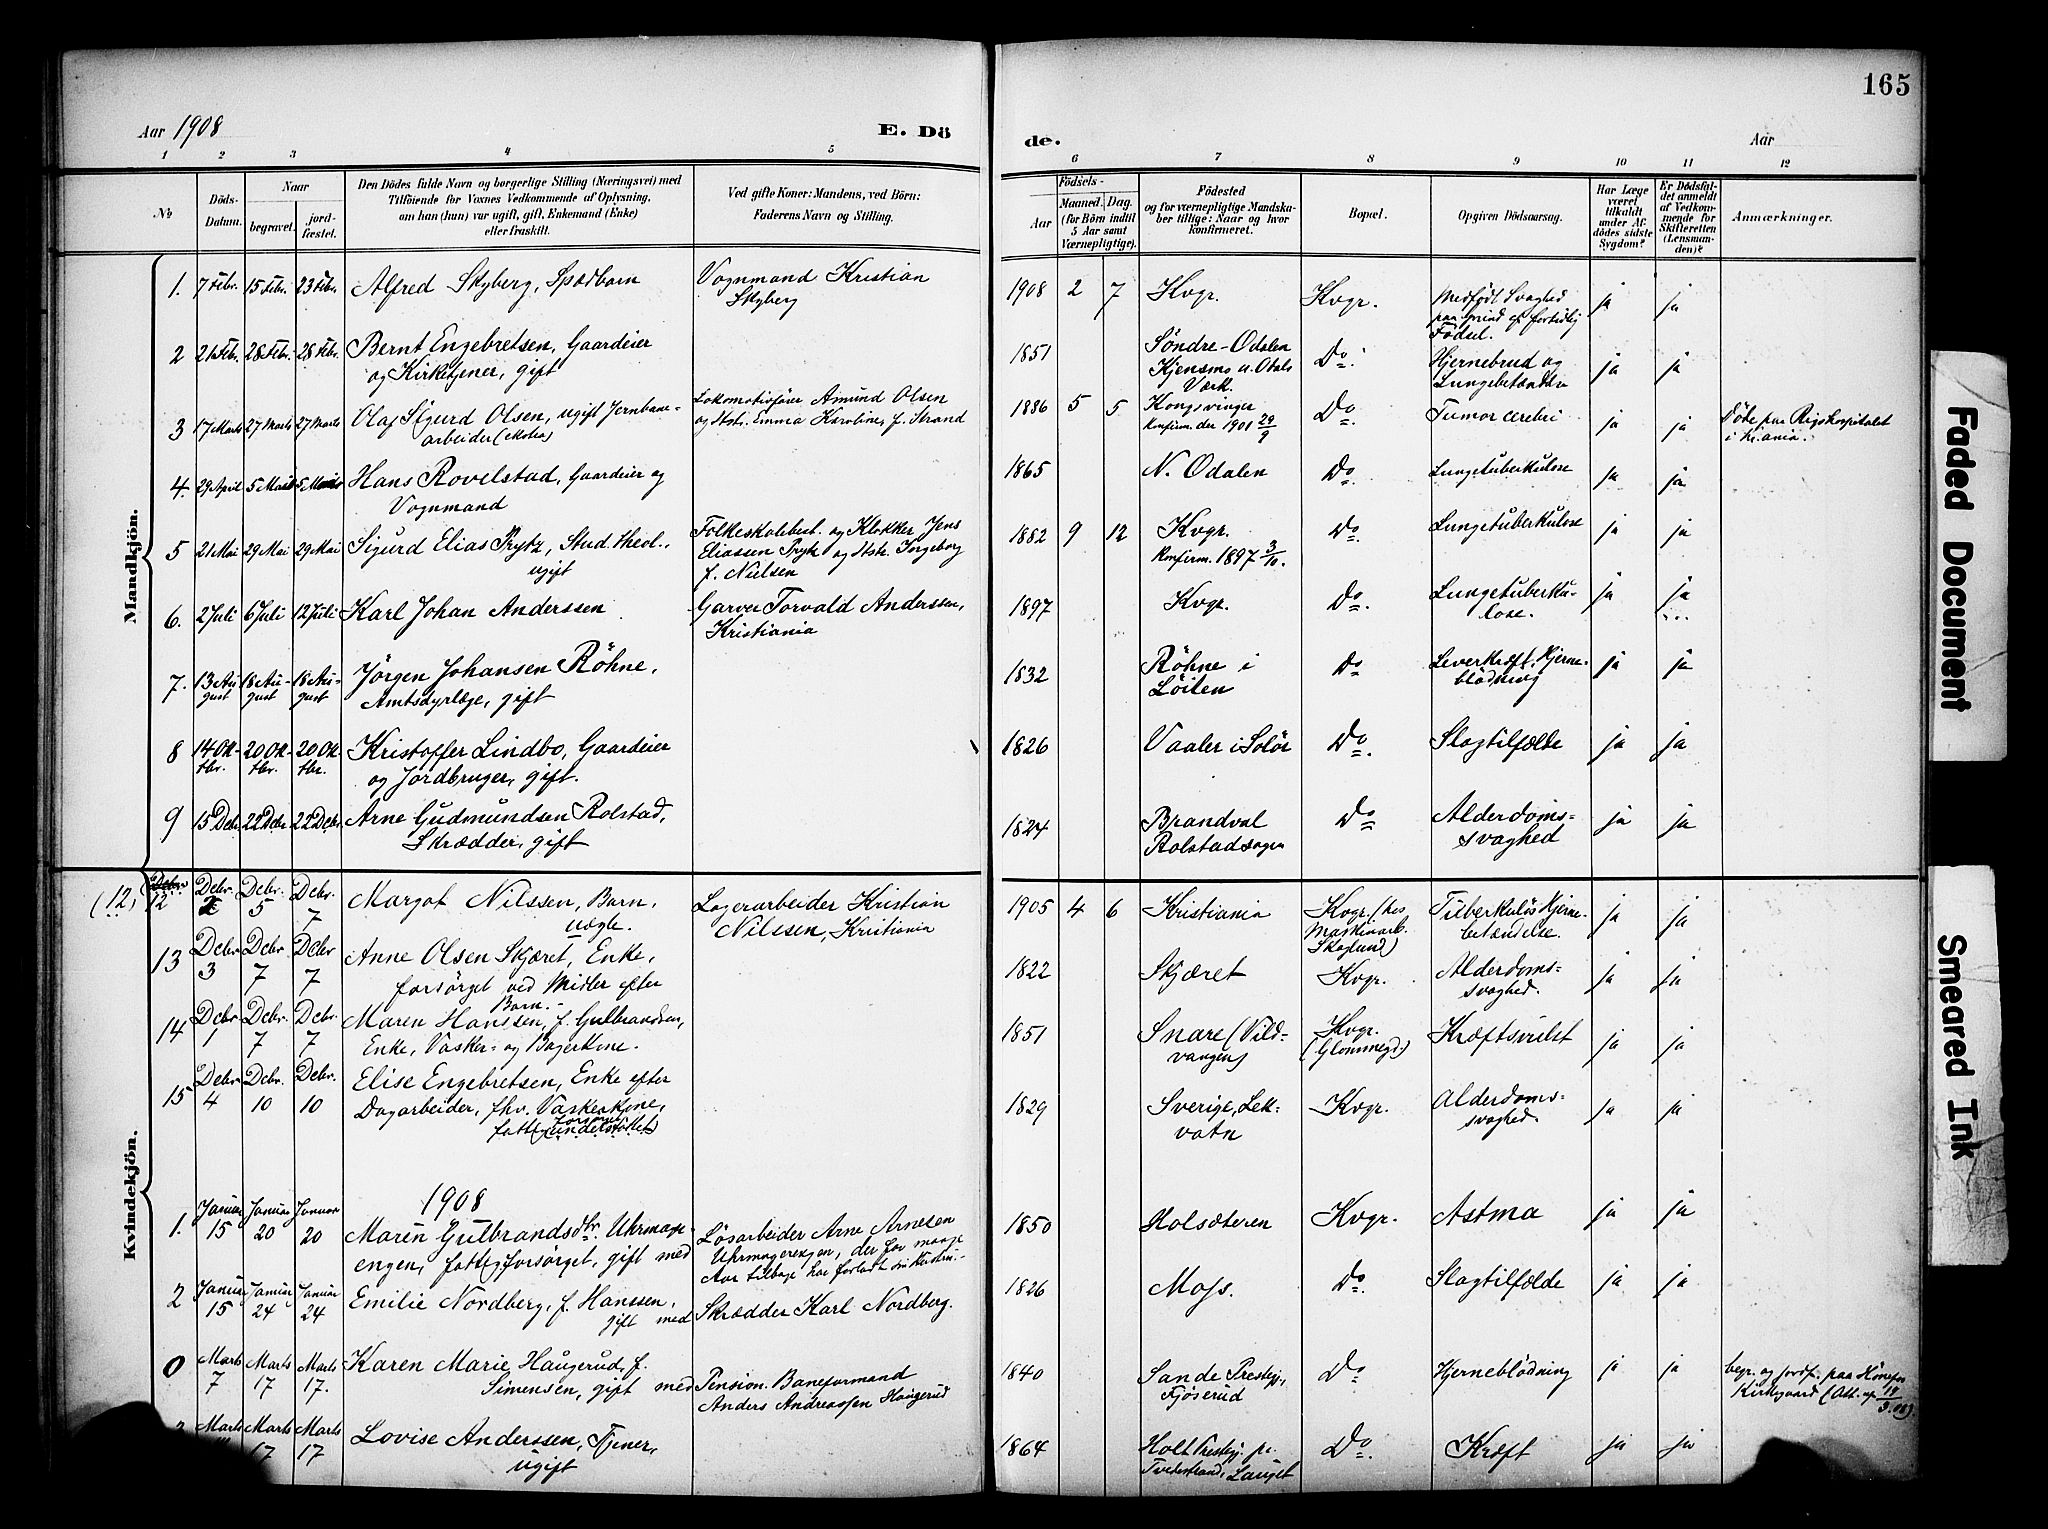 165
Aar 1908
E. Dö
de.
Aar
1 2 3 4 5 6 7 8 9 10 11 12
No
Döds-Datum.
Naar
begravet.
jord-fæstet.
Den Dödes fulde Navn og borgerlige Stilling (Næringsvei) med
Tilföiende for Voxnes Vedkommende af Oplysning,
om han (hun) var ugift, gift, Enkemand (Enke)
eller fraskilt.
Ved gifte Koner: Mandens, ved Börn:
Faderens Navn og Stilling.
Födsels-
Aar
Maaned. Dag.
(for Börn indtil
5 Aar samt
Værnepligtige).
Födested
og for værnepligtige Mandska-
ber tillige: Naar og hvor
konfirmeret.
Bopæl.
Opgiven Dödsaarsag.
Har Læge
været
tilkaldt
under Af-
dödes sidste
Sygdom?
Er Dödsfal-
det anmeldt
af Vedkom-
mende for
Skifteretten
(Lensman-
den)?
Anmærkninger.
Mandkjön.
1. 7 Febr. 15 Febr. 23 Febr. Alfred Skyberg, Spædbarn
Vognmand Kristian
Skyberg
1908 2 7 Kvgr. Kvgr. Medfödt Svaghed
paa Grund af fortidlig
Födsel. ja ja
2 21 Febr. 28 Febr. 28 Febr. Bernt Engebretsen, Gaardeier
og Kirketjener, gift
1851 Söndre-Odalen
Kjensmo u. Odals
Værk. Do. Hjernebrud og
Lungebetændelse ja ja
3 17 Marts 27 Marts 27 Marts Olaf Sigurd Olsen, ugift Jernbane-
arbeider
Lokomotivförer Amund Olsen
og Hstr. Emma Karoline, f. Strand
1886 5 5 Kongsvinger
Konfirm. der 1901 29/9 Do. Tumor cerebri ja ja Döde paa Rigshospitalet
i Kr.ania.
4. 29 April 5 Mai 5 Mai Hans Rovelstad, Gaardeier og
Vognmand
1865 N. Odalen Do. Lungetuberkulose ja ja
5 21 Mai 29 Mai 29 Mai Sigurd Elias Prytz, Stud. theol.,
ugift
Folkeskolebest. og Klokker Jens
Eliassen Prytz og Hstr. Ingeborg
f. Nielsen
1882 9 12 Kvgr.
Konfirm. 1897 3/10. Do. Lungetuberkulose ja ja
6. 2 Juli 6 Juli 12 Juli Karl Johan Anderssen
Garver Torvald Anderssen,
Kristiania
1897 Kvgr. Do. Lungetuberku-
lose. ja ja
7. 13 Au-
gust 18 Au-
gust 18 Au-
gust Jörgen Johansen Röhne,
Amtsdyrlæge, gift
1832 Röhne i
Löiten Do Leverkræft, Hjerne-
blödning ja ja
8 14 Ok-
tbr. 20 Ok-
tbr. 20 Ok-
tbr. Kristoffer Lindbo, Gaardeier
og Jordbruger, gift.
1826 Vaaler i Solör Do. Slagtilfælde ja ja
9 15 Debr. 22 Debr. 22 Debr. Arne Gudmundsen Rolstad,
Skrædder, gift
1824 Brandval
Rolstadsagen Do Alderdoms-
svaghed ja ja
Kvindekjön.
(12) 12 Debr. 2 Debr. 5 Debr. 7 Margot Nilssen, Barn,
uægte.
Lagerarbeider Kristian
Nilssen, Kristiania
1905 4 6 Kristiania Kvgr. (hos
Maskinarb.
Skoglund) Tuberkulös Hjerne-
betændelse. ja ja
13 Debr. 3 Debr. 7 Debr. 7 Anne Olsen Skjæret, Enke,
forsörget ved Midler efter
Barn.
1822 Skjæret Kvgr. Alderdoms-
svaghed. ja ja
14 Debr. 1 Debr. 7 Debr. 7 Maren Hanssen, f. Gulbrandsen,
Enke, Vasker- og Bagerkone.
1851 Snare (Vild-
vangen) Kvgr.
(Glommegd.) Kræftsvulst ja ja
15 Debr. 4 Debr. 10 Debr. 10 Elise Engebretsen, Enke efter
Dagarbeider, fhv. Vaskerkone,
fattigunderstöttet
1829 Sverige, Lek-
vatn Kvgr. Alderdoms-
svaghed. ja ja
1908
1. Januar 15 Januar 20 Januar 20 Maren Gulbrandsdtr. Uhrmager-
engen, fattigforsörget, gift med
Lösarbeider Arne Arnesen
Uhrmagerengen, der for mange
Aar tilbage har forladt sin Hustru.
1850 Holsæteren Kvgr. Astma ja ja
2 Januar 15 Januar 24 Januar 24 Emilie Nordberg, f. Hanssen,
gift med
Skrædder Karl Nordberg.
1826 Moss. Do. Slagtilfælde ja ja
0 Marts 7 Marts 17 Marts 17. Karen Marie Haugerud, f.
Simensen, gift med
Pension. Baneformand
Anders Andreassen Haugerud
1840 Sande Prestegj.,
Fjöserud Do Hjerneblödning ja ja begr. og jordf. paa Hönefos
Kirkegaard (Att. af 19/3.08).
Marts Marts 17 Marts 17 Lovise Anderssen, Tjener,
ugift
1864 Holt Prestegj. pr.
Tvedestrand, Lauget Do Kræft ja ja
Faded Document
Smeared Ink